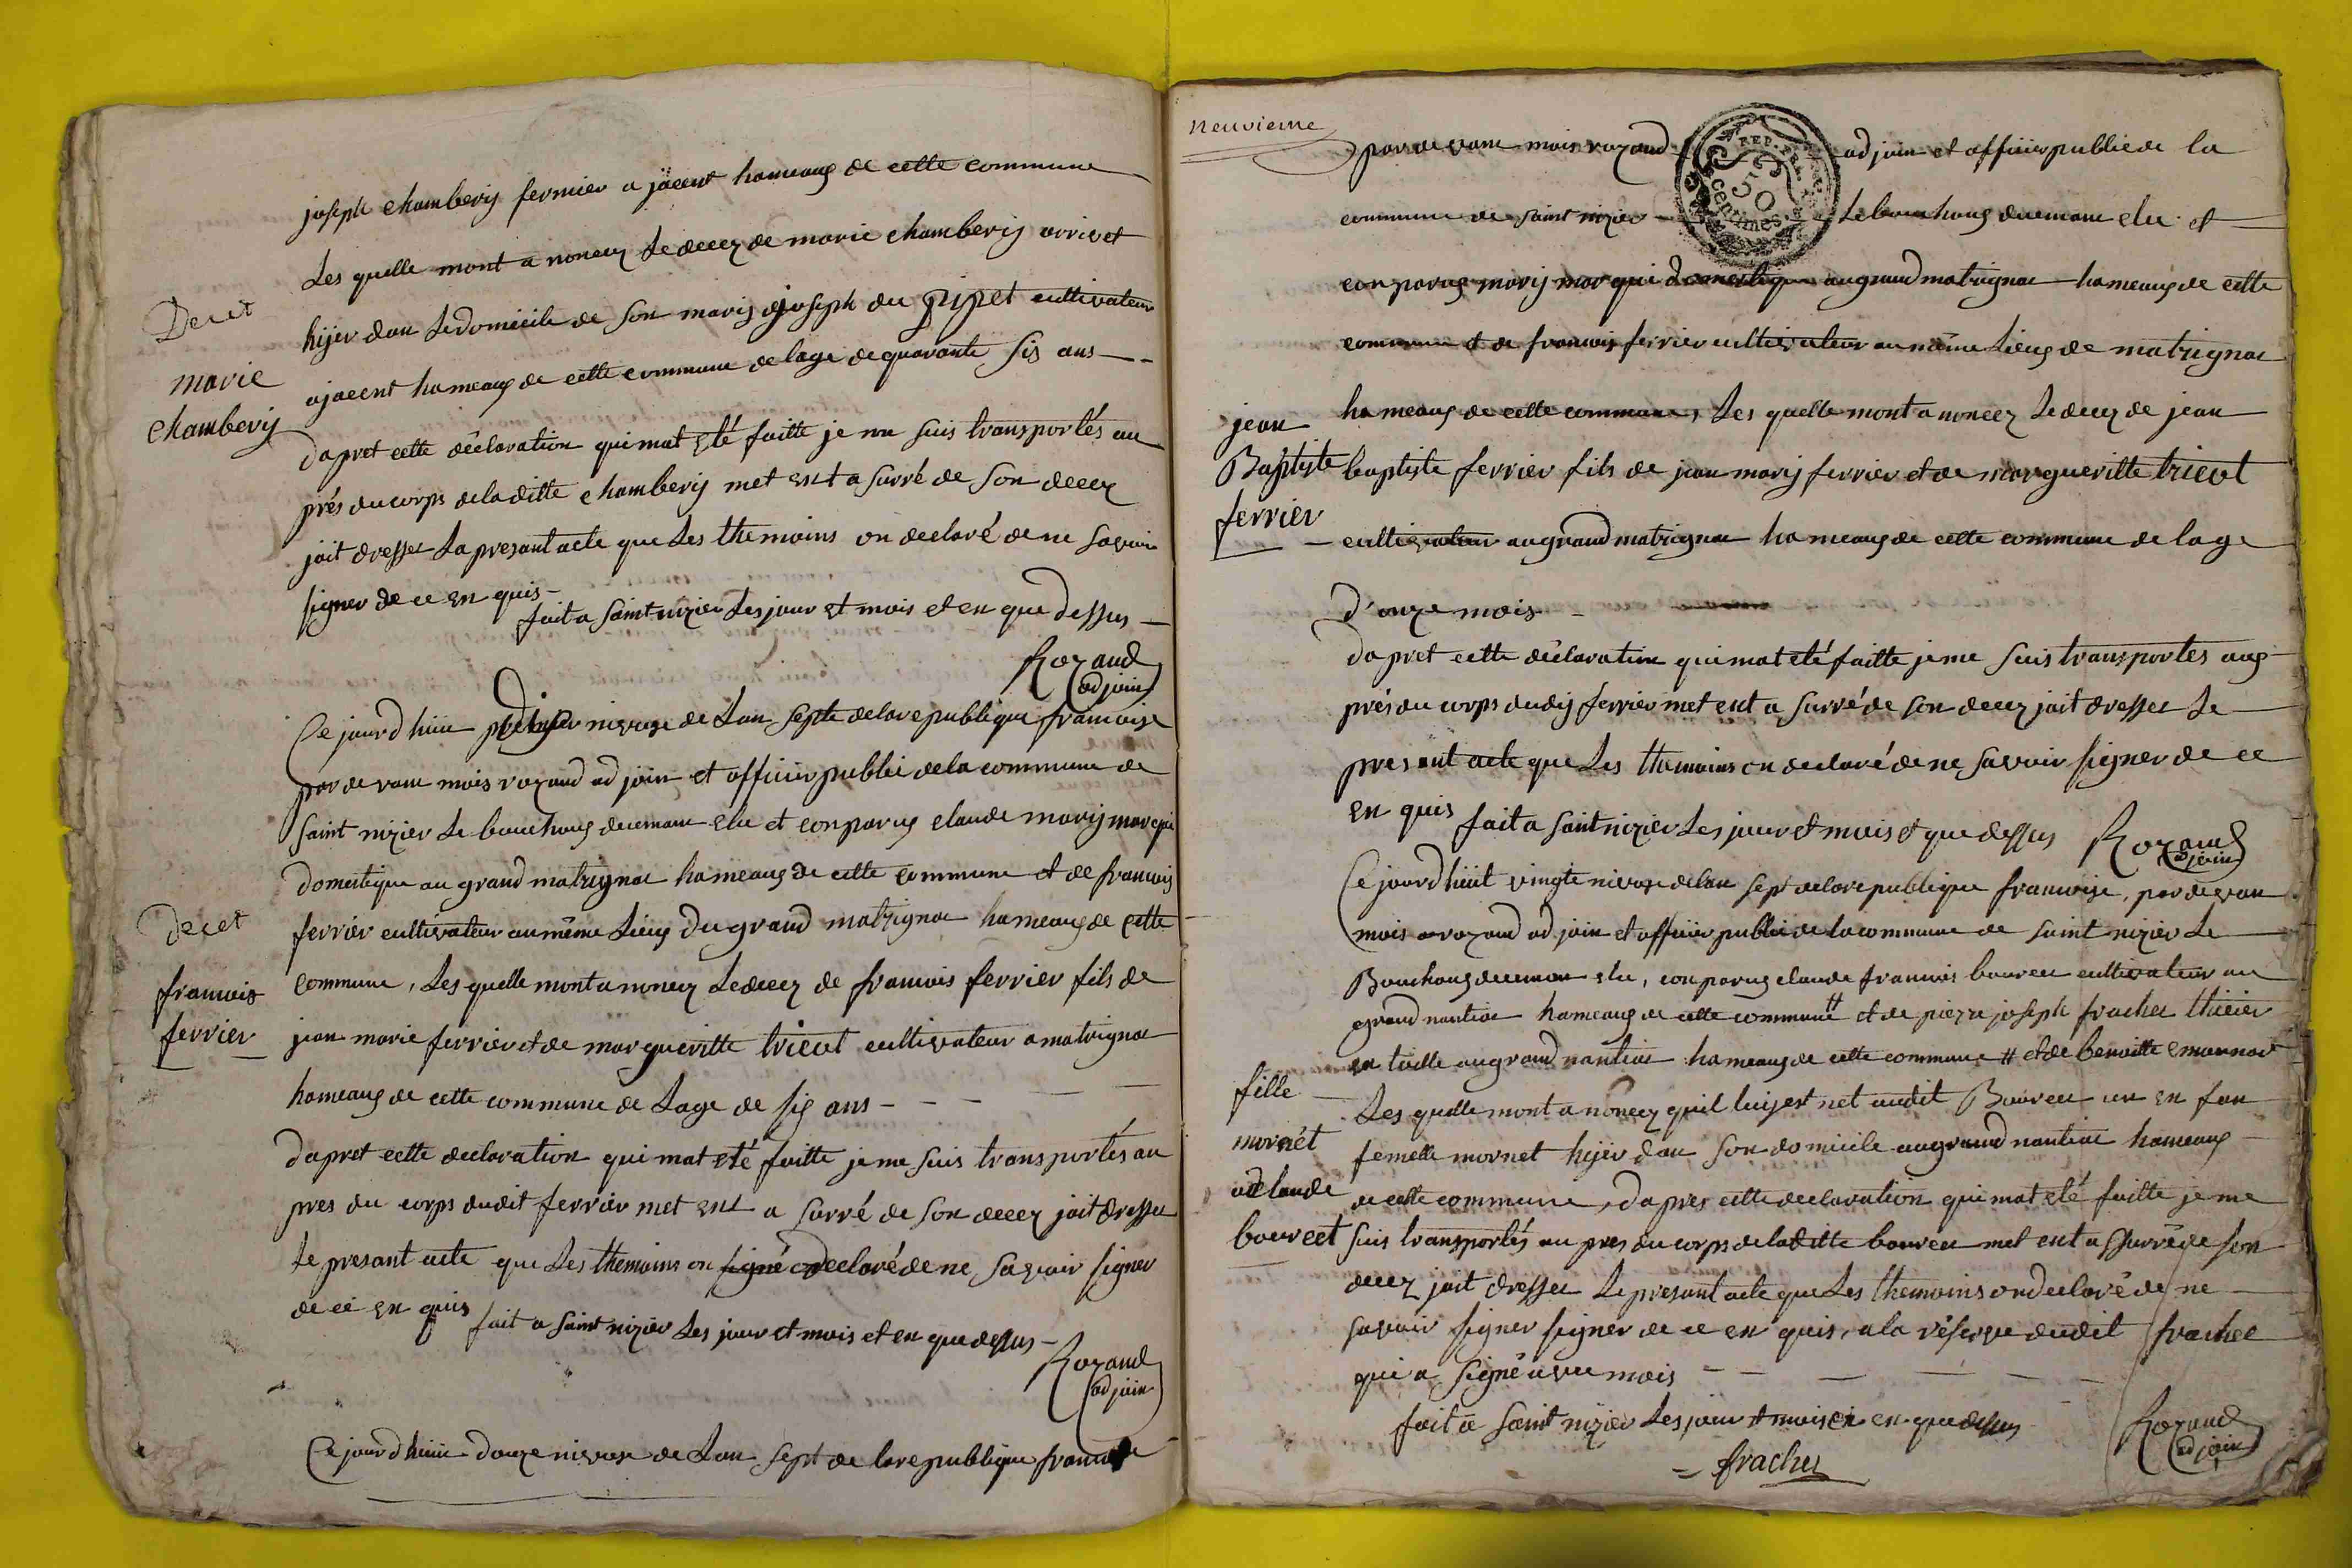 joseph chambery fermier a jacent hameaux de cette commune
Les quelle mont a noncez Le decez de marie chambery arrivet
hijer dan Le domicile de son marij joseph du pipet cultivateur
ajacent hameaux de cette commune de lage de quarante six ans
Decet
marie
chamberij
dapret cette déclaration qui mat été faitte je me suis transportés au
prés du corps de laditte chamberij met ent a surré de son decez
jait dresser La presant acte que Les themoins on declaré de ne savoir
signer de ce en quis
fait a saint nizier Les jour et mois et en que dessus
Rozand
adjoin
Ce jourd huit nivose de Lan septe de la republique francoise
par devant mois rozand ad join et officier public de la commune de
saint nizier Le bouchoux ducmane elu et conparus claude marij marqui
domestique au grand matrignac hameaux de cette commune et de francois
ferrier cultivateur au même Lieux du grand matrignac hameaux de cette
commune, Les quelle mont a noncez Le decez de francois ferrier fils de
jean marie ferrier et de margueritte tricot cultivateur a matrignac
hameaux de cette commune de Lage de six ans
Decet
francois
ferrier
dapret cette declaration qui mat eté faitte je me suis transportés au
pres du corps dudit ferrier met ent a surré de son decez jait dresser
Le presant acte que Les themoins on signé declaré de ne savoir signer
de ce en quis
fait a saint nizier Les jour et mois et en que dessus
Rozand
adjoin
Ce jourd huit douze nivose de Lan sept de la republique francoise
neuvieme
par devant mois rozand ad join et officier public de la
commune de saint nizier Le bouchoux ducmane elu et
REP. FRA.
50
centimes
conparus marij marqui domestique au grand matrignac hameaux de cette
commune et de francois ferrier cultivateur au même Lieux de matrignac
hameaux de cette commune, Les quelle mont a noncez Le decez de jean
baptiste ferrier fils de jean marij ferrier et de margueritte tricot
cultivateur au grand matrignac hameaux de cette commune de lage
d'onze mois
jean
Baptiste
ferrier
dapret cette déclaration qui mat eté faitte je me suis transportés aux
prés du corps dudij ferrier met ent a surré de son decez jait dresser Le
presant acte que Les themoins on declaré de ne savoir signer de ce
en quis
fait a saint nizier Les jour et mois et que dessus
Rozand
adjoin
Ce jourd huit vingte nivose de lan sept de la republique francoise, par devan
mois rozand ad join et officier public de la commune de saint nizier Le
Bouchoux ducman elu, conparus claude francois boureu cultivateur au
grand nantiac hameaux de cette commune et de pierre joseph frachet
en toille au grand nantiac hameaux de cette commune # et de benoitte
Les quelle mont a noncez quil luij est net audit Boureu un en fan
femelle mornet hijer dan son domicile au grand nantiac hameaux
de cette commune, dapres cette declaration qui mat eté faitte je me
suis transportés au pres du corps de laditte boureu met ent a surré de son
decez jait dresser Le presant acte que Les themoins on declaré de ne
savoir signer signer de ce en quis, a la réserve dudit frachet
qui a signé avec mois
fille
mornét
a claude
bourcet
fait a saint nizier Les jour et mois et en que dessus
Rozand
adjoin
frachet